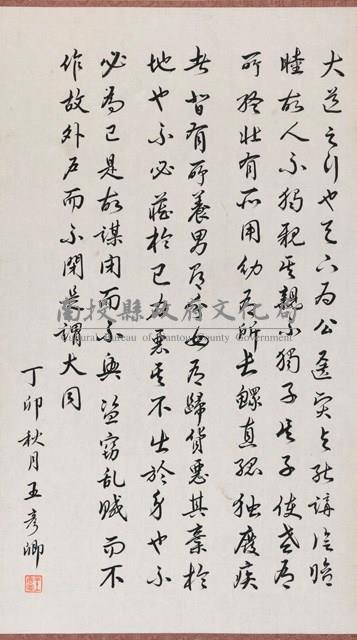 大道之行也天下為公選賢与能講信脩
睦故人不獨親其親不獨子其子使老有
所終壯有所用幼有所長鰥寡孤独廢疾
者皆有所養男有分女有歸貨惡其棄於
地也不必藏於己力惡其不出於身也不
必為己是故謀閉而不興盜竊乱賊而不
作故外戶而不閉是謂大同
丁卯秋月王彥卿
南投縣政府文化局
Cultural Bureau of Nantou County Government